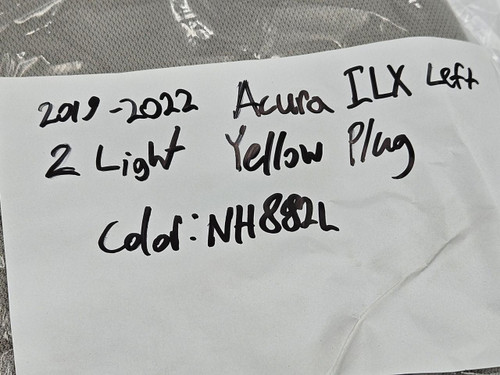 2019-2022 Acura ILX Left
2 Light Yellow Plug
Color: NH882L